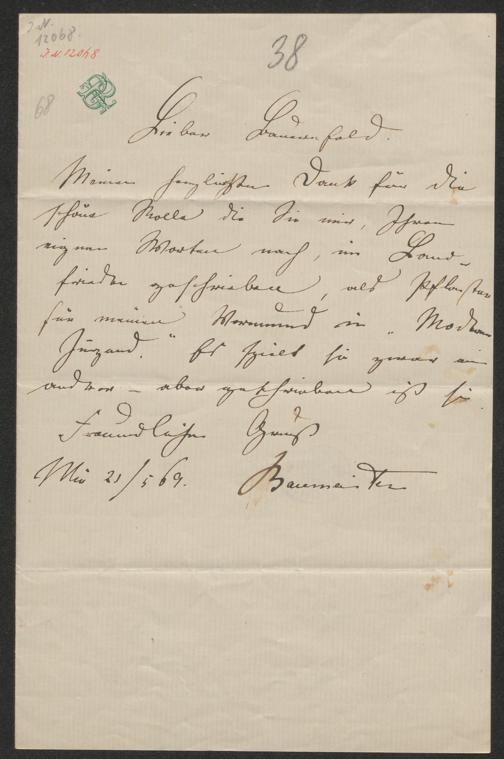 J. N.
12068.
J. N. 12068
38
68
BR
Lieber Bauernfeld.
Meinen herzlichsten Dank für die
schöne Rolle die Sie mir, Ihren
eignen Worten nach, im Land-
frieden geschrieben, als Pflaster
für meinen Vormund in „Moderne
Jugend." Es spielt sie zwar ein
andrer – aber geschrieben ist sie.
Freundlichen Gruß
21/5 69. Baumeister